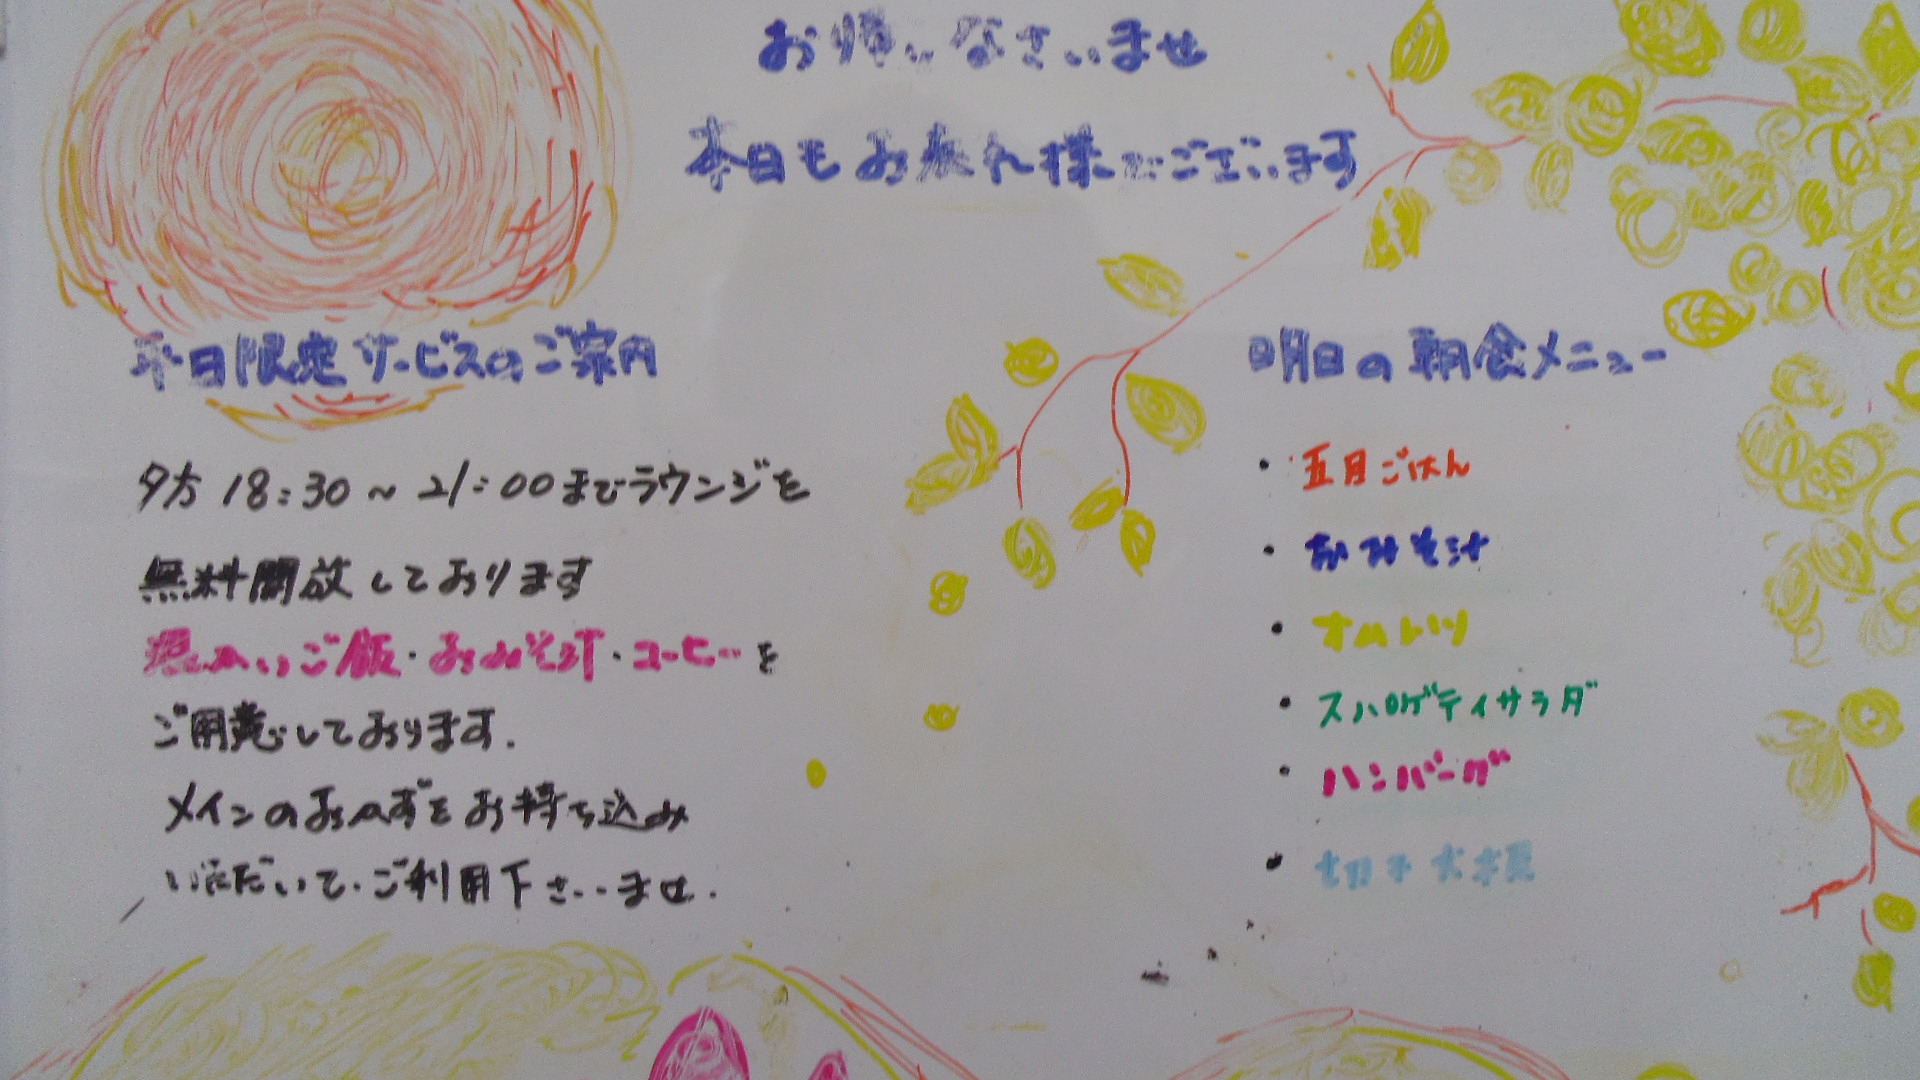 お帰りなさいませ
本日もお疲れ様でございます
平日限定サービスのご案内
夕方 18:30〜21:00までラウンジを
無料開放しております
温かいご飯・おみそ汁・コーヒーを
ご用意しております.
メインのおかずをお持ち込み
いただいて.ご利用下さいませ.
明日の朝食メニュー
・五目ごはん
・おみそ汁
・オムレツ
・スパゲティサラダ
・ハンバーグ
・切干大根